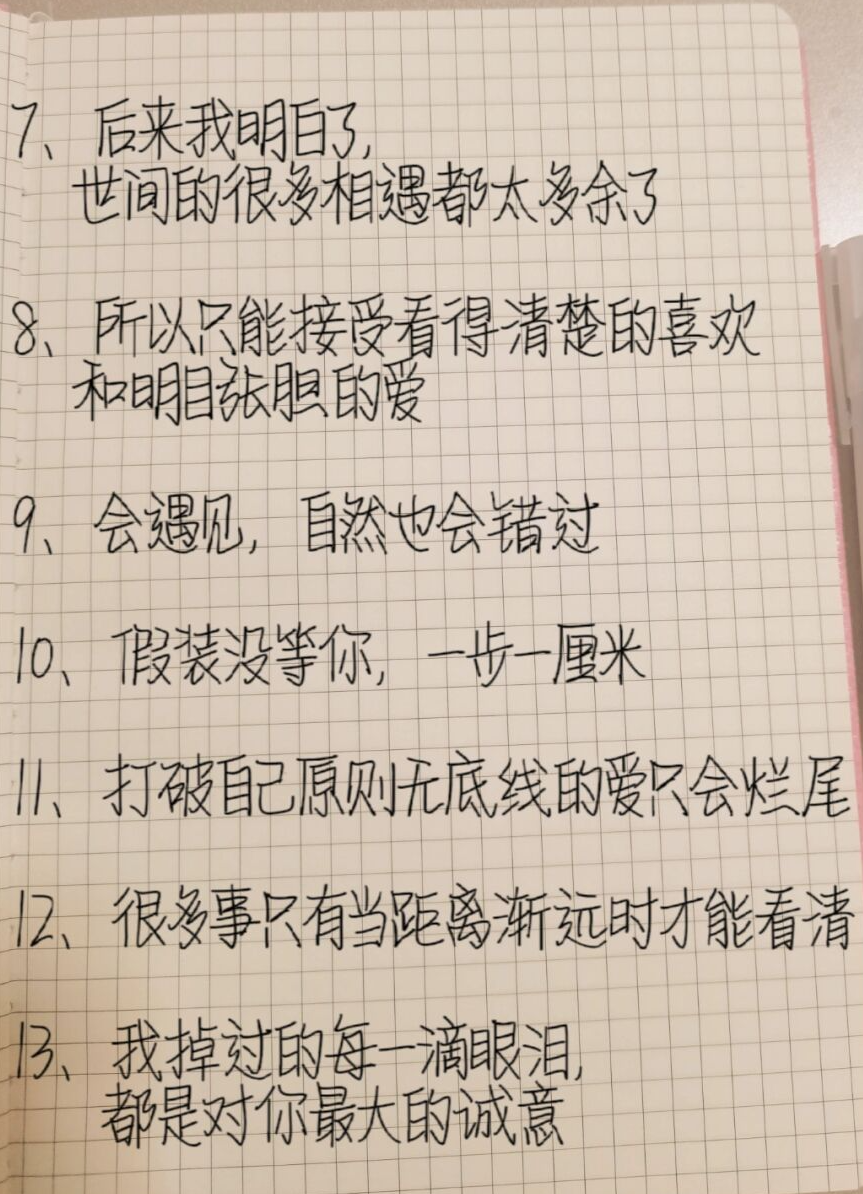 7、后来我明白了,
世间的很多相遇都太多余了
8、所以只能接受看得清楚的喜欢
和明目张胆的爱
9、会遇见, 自然也会错过
10、假装没等你, 一步一厘米
11、打破自己原则无底线的爱只会烂尾
12、很多事只有当距离渐远时才能看清
13、我掉过的每一滴眼泪,
都是对你最大的诚意